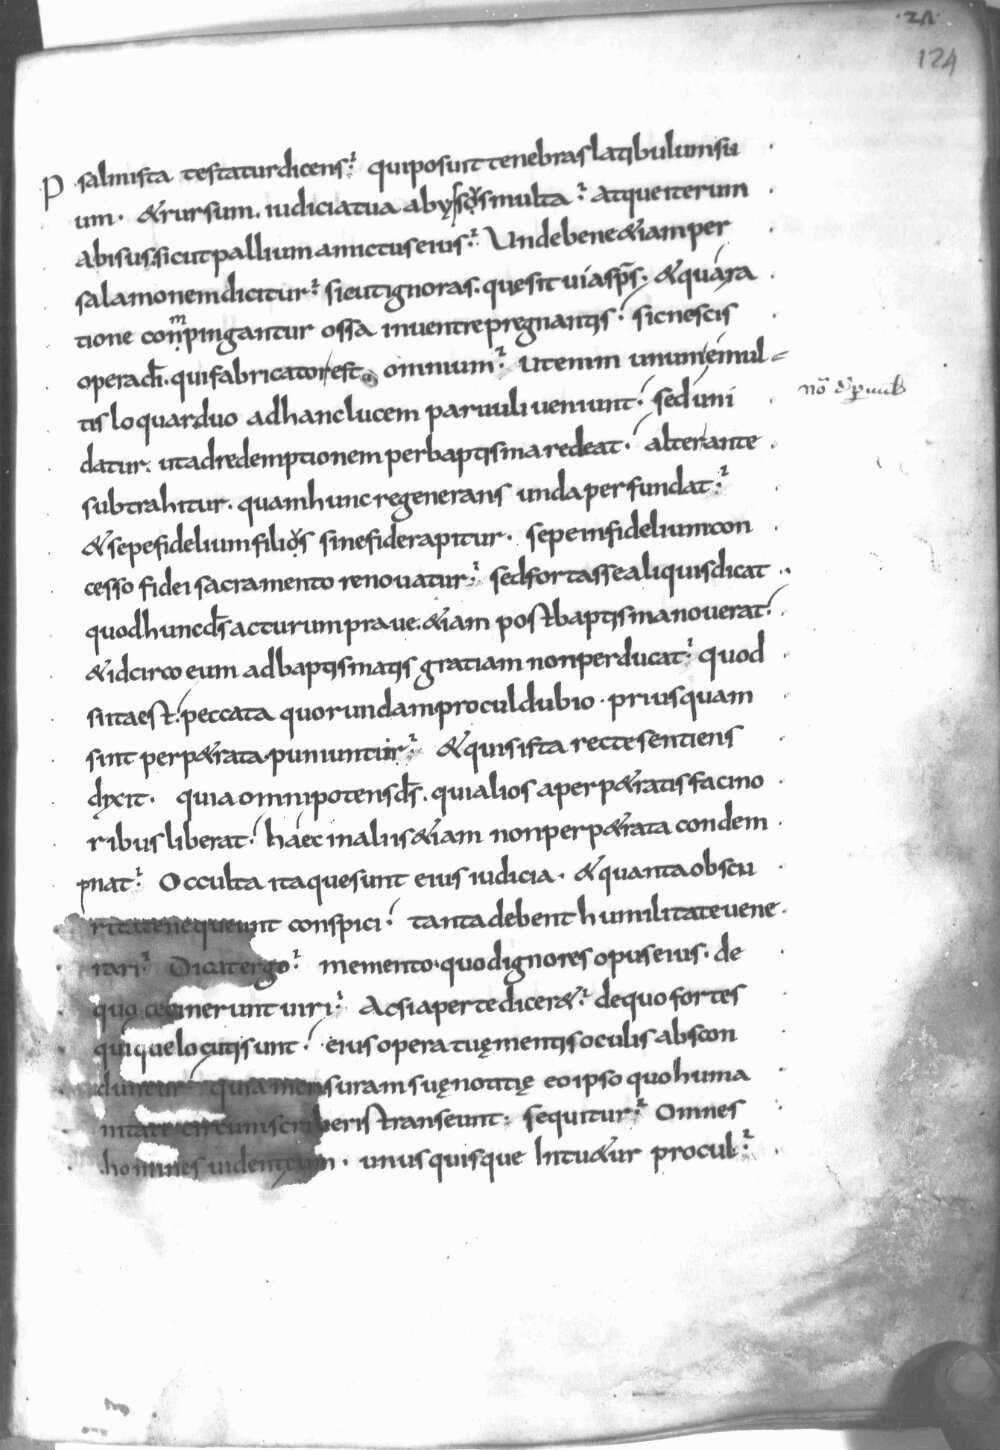 ·2Λ·
124
Psalmista testatur dicens. qui posuit tenebras latibulum su
um. & rursum. iudicia tua abyssos multa. atque iterum
abisus sicut pallium amictus eius. Unde bene &iam per
salamonem dicitur. sicut ignoras. que sit uia sp̄s. & qua ra
tione conmpingantur ossa in uentre pregnantis. sic nescis
opera dī. qui fabricator est omnium. Ut enim unum e mul
tis loquar duo ad hanc lucem paruuli ueniunt. sed uni
datur. ut ad redemptionem per baptisma redeat. alter ante
subtrahitur. quam hunc regenerans unda perfundat.
& sepe fidelium filios sine fide rapitur. sepe infidelium con
cesso fidei sacramento renouatur. sed fortasse aliquis dicat
quod hunc d̄s acturum praue. &iam post baptisma nouerat.
& idcirco eum ad baptismatis gratiam non perducat. quod
si ita est. peccata quorundam procul dubio. priusquam
sint perp&rata. puniuntur. & quis ista recte sentiens
dixit. quia omnipotens d̄s. qui alios a perp&ratis facino
ribus liberat. haec in aliis &iam non perp&rata condem
pnat. Occulta itaque sunt eius iudicia. & quanta obscu
ritate nequeunt conspici. tanta debent humilitate uene
rari. Dicat ergo. memento. quod ignores opus eius. de
quo cecinerunt uiri. Ac si aperte dicer&. de quo fortes
quique locuti sunt. eius opera tuę mentis oculis abscon
duntur. quia mensuram suę notitię eo ipso quo huma
nitate circumscriberis transeunt. sequitur. Omnes
homines uident eum. unusquisque Intu&ur procul.